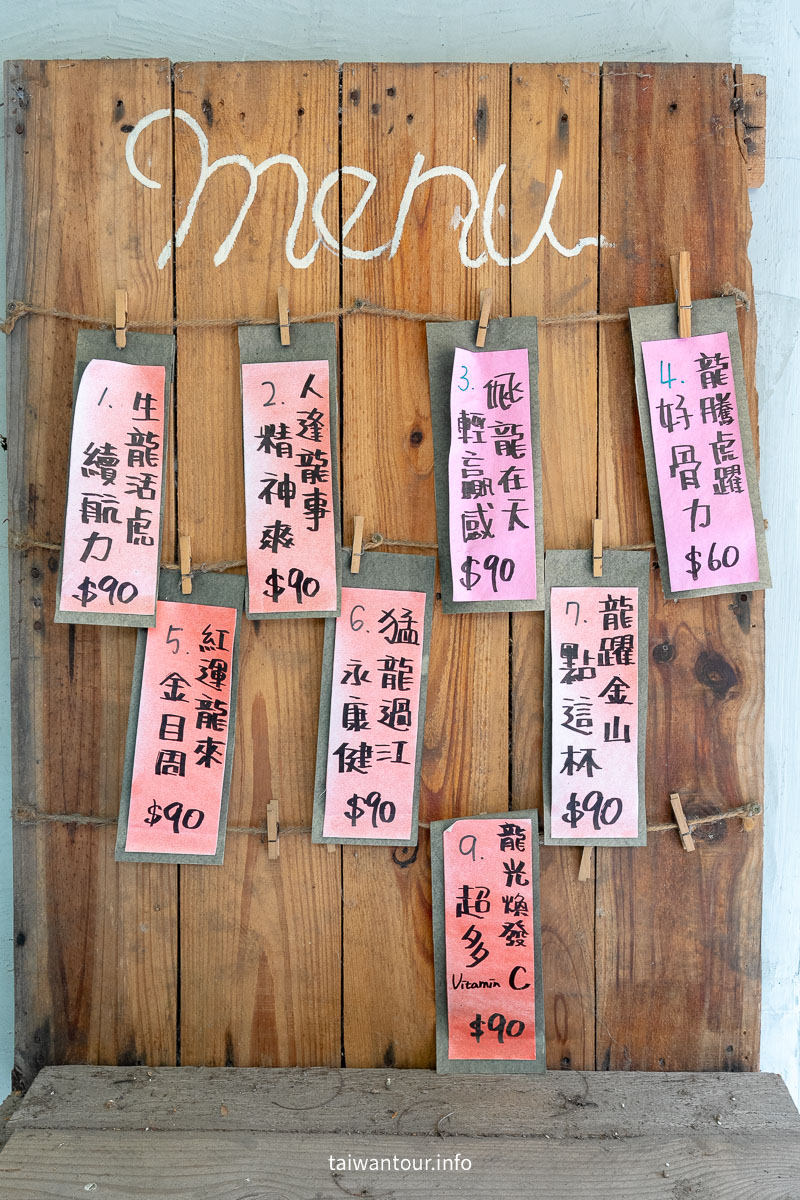 menu
1.
生龍活虎
續航力
$90
2.
人逢龍事
精神爽
$90
3.
飛龍在天
輕贏感
$90
4.
龍騰虎躍
好骨力
$60
5.
紅運龍來
金目周
$90
6.
猛龍過江
永康健
$90
7.
龍躍金山
點這杯
$90
9.
龍光煥發
超多
Vitamin C
$90
taiwantour.info